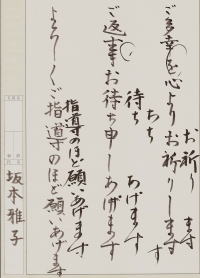 ご多幸を心よりお祈りします
お祈り ます
ち ち す
ご返事お待ち申しあげます
待ち あげます
指導のほど願いあげます
よろしくご指導のほど願いあげます
坂本雅子